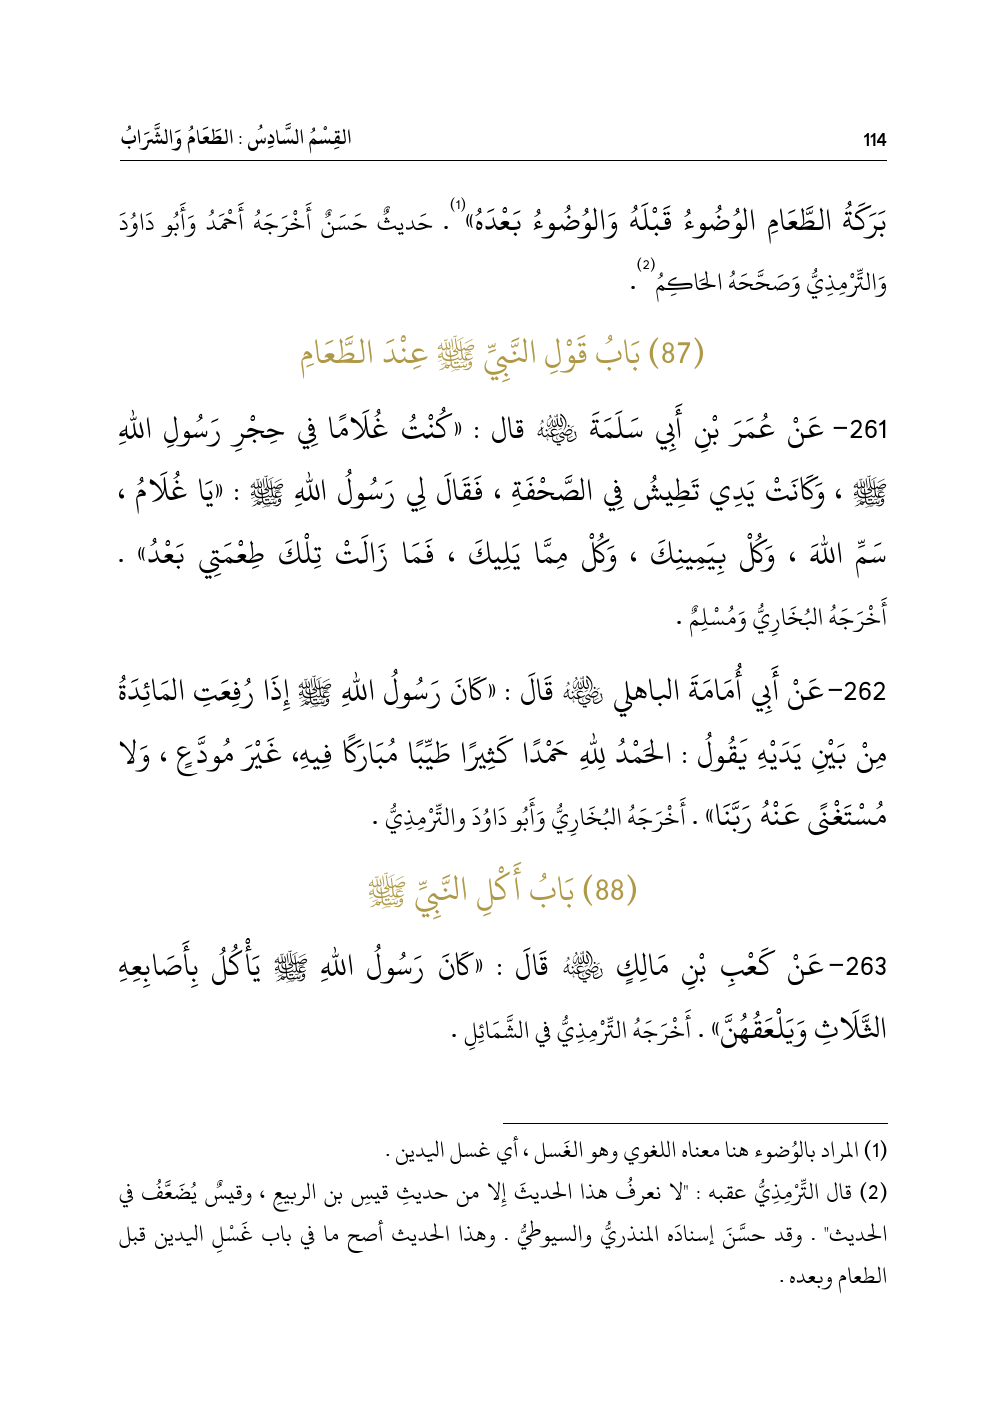 114 القِسْمُ السَّادِسُ : الطَعَامُ وَالشَّرَابُ
بَرَكَةُ الطَّعَامِ الوُضُوءُ قَبْلَهُ وَالوُضُوءُ بَعْدَهُ»(1). حَديثٌ حَسَنٌ أَخْرَجَهُ أَحْمَدُ وَأَبُو دَاوُدَ
وَالتِّرْمِذِيُّ وَصَحَّحَهُ الحَاكِمُ(2).
(87) بَابُ قَوْلِ النَّبِيِّ ﷺ عِنْدَ الطَّعَامِ
261- عَنْ عُمَرَ بْنِ أَبِي سَلَمَةَ رضي الله عنه قال : «كُنْتُ غُلَامًا فِي حِجْرِ رَسُولِ اللهِ
ﷺ ، وَكَانَتْ يَدِي تَطِيشُ فِي الصَّحْفَةِ ، فَقَالَ لِي رَسُولُ اللهِ ﷺ : «يَا غُلَامُ ،
سَمِّ اللهَ ، وَكُلْ بِيَمِينِكَ ، وَكُلْ مِمَّا يَلِيكَ ، فَمَا زَالَتْ تِلْكَ طِعْمَتِي بَعْدُ» .
أَخْرَجَهُ البُخَارِيُّ وَمُسْلِمٌ .
262- عَنْ أَبِي أُمَامَةَ الباهلي رضي الله عنه قَالَ : «كَانَ رَسُولُ اللهِ ﷺ إِذَا رُفِعَتِ المَائِدَةُ
مِنْ بَيْنِ يَدَيْهِ يَقُولُ : الحَمْدُ لِلهِ حَمْدًا كَثِيرًا طَيِّبًا مُبَارَكًا فِيهِ، غَيْرَ مُودَّعٍ ، وَلا
مُسْتَغْنًى عَنْهُ رَبَّنَا» . أَخْرَجَهُ البُخَارِيُّ وَأَبُو دَاوُدَ والتِّرْمِذِيُّ .
(88) بَابُ أَكْلِ النَّبِيِّ ﷺ
263- عَنْ كَعْبِ بْنِ مَالِكٍ رضي الله عنه قَالَ : «كَانَ رَسُولُ اللهِ ﷺ يَأْكُلُ بِأَصَابِعِهِ
الثَّلَاثِ وَيَلْعَقُهُنَّ» . أَخْرَجَهُ التِّرْمِذِيُّ في الشَّمَائِلِ .
(1) المراد بالوُضوء هنا معناه اللغوي وهو الغَسل ، أي غسل اليدين .
(2) قال التِّرْمِذِيُّ عقبه : "لا نعرفُ هذا الحديثَ إِلا من حديثِ قيسِ بن الربيعِ ، وقيسٌ يُضَعَّفُ في
الحديث" . وقد حسَّنَ إسنادَه المنذريُّ والسيوطيُّ . وهذا الحديث أصح ما في باب غَسْلِ اليدين قبل
الطعام وبعده .